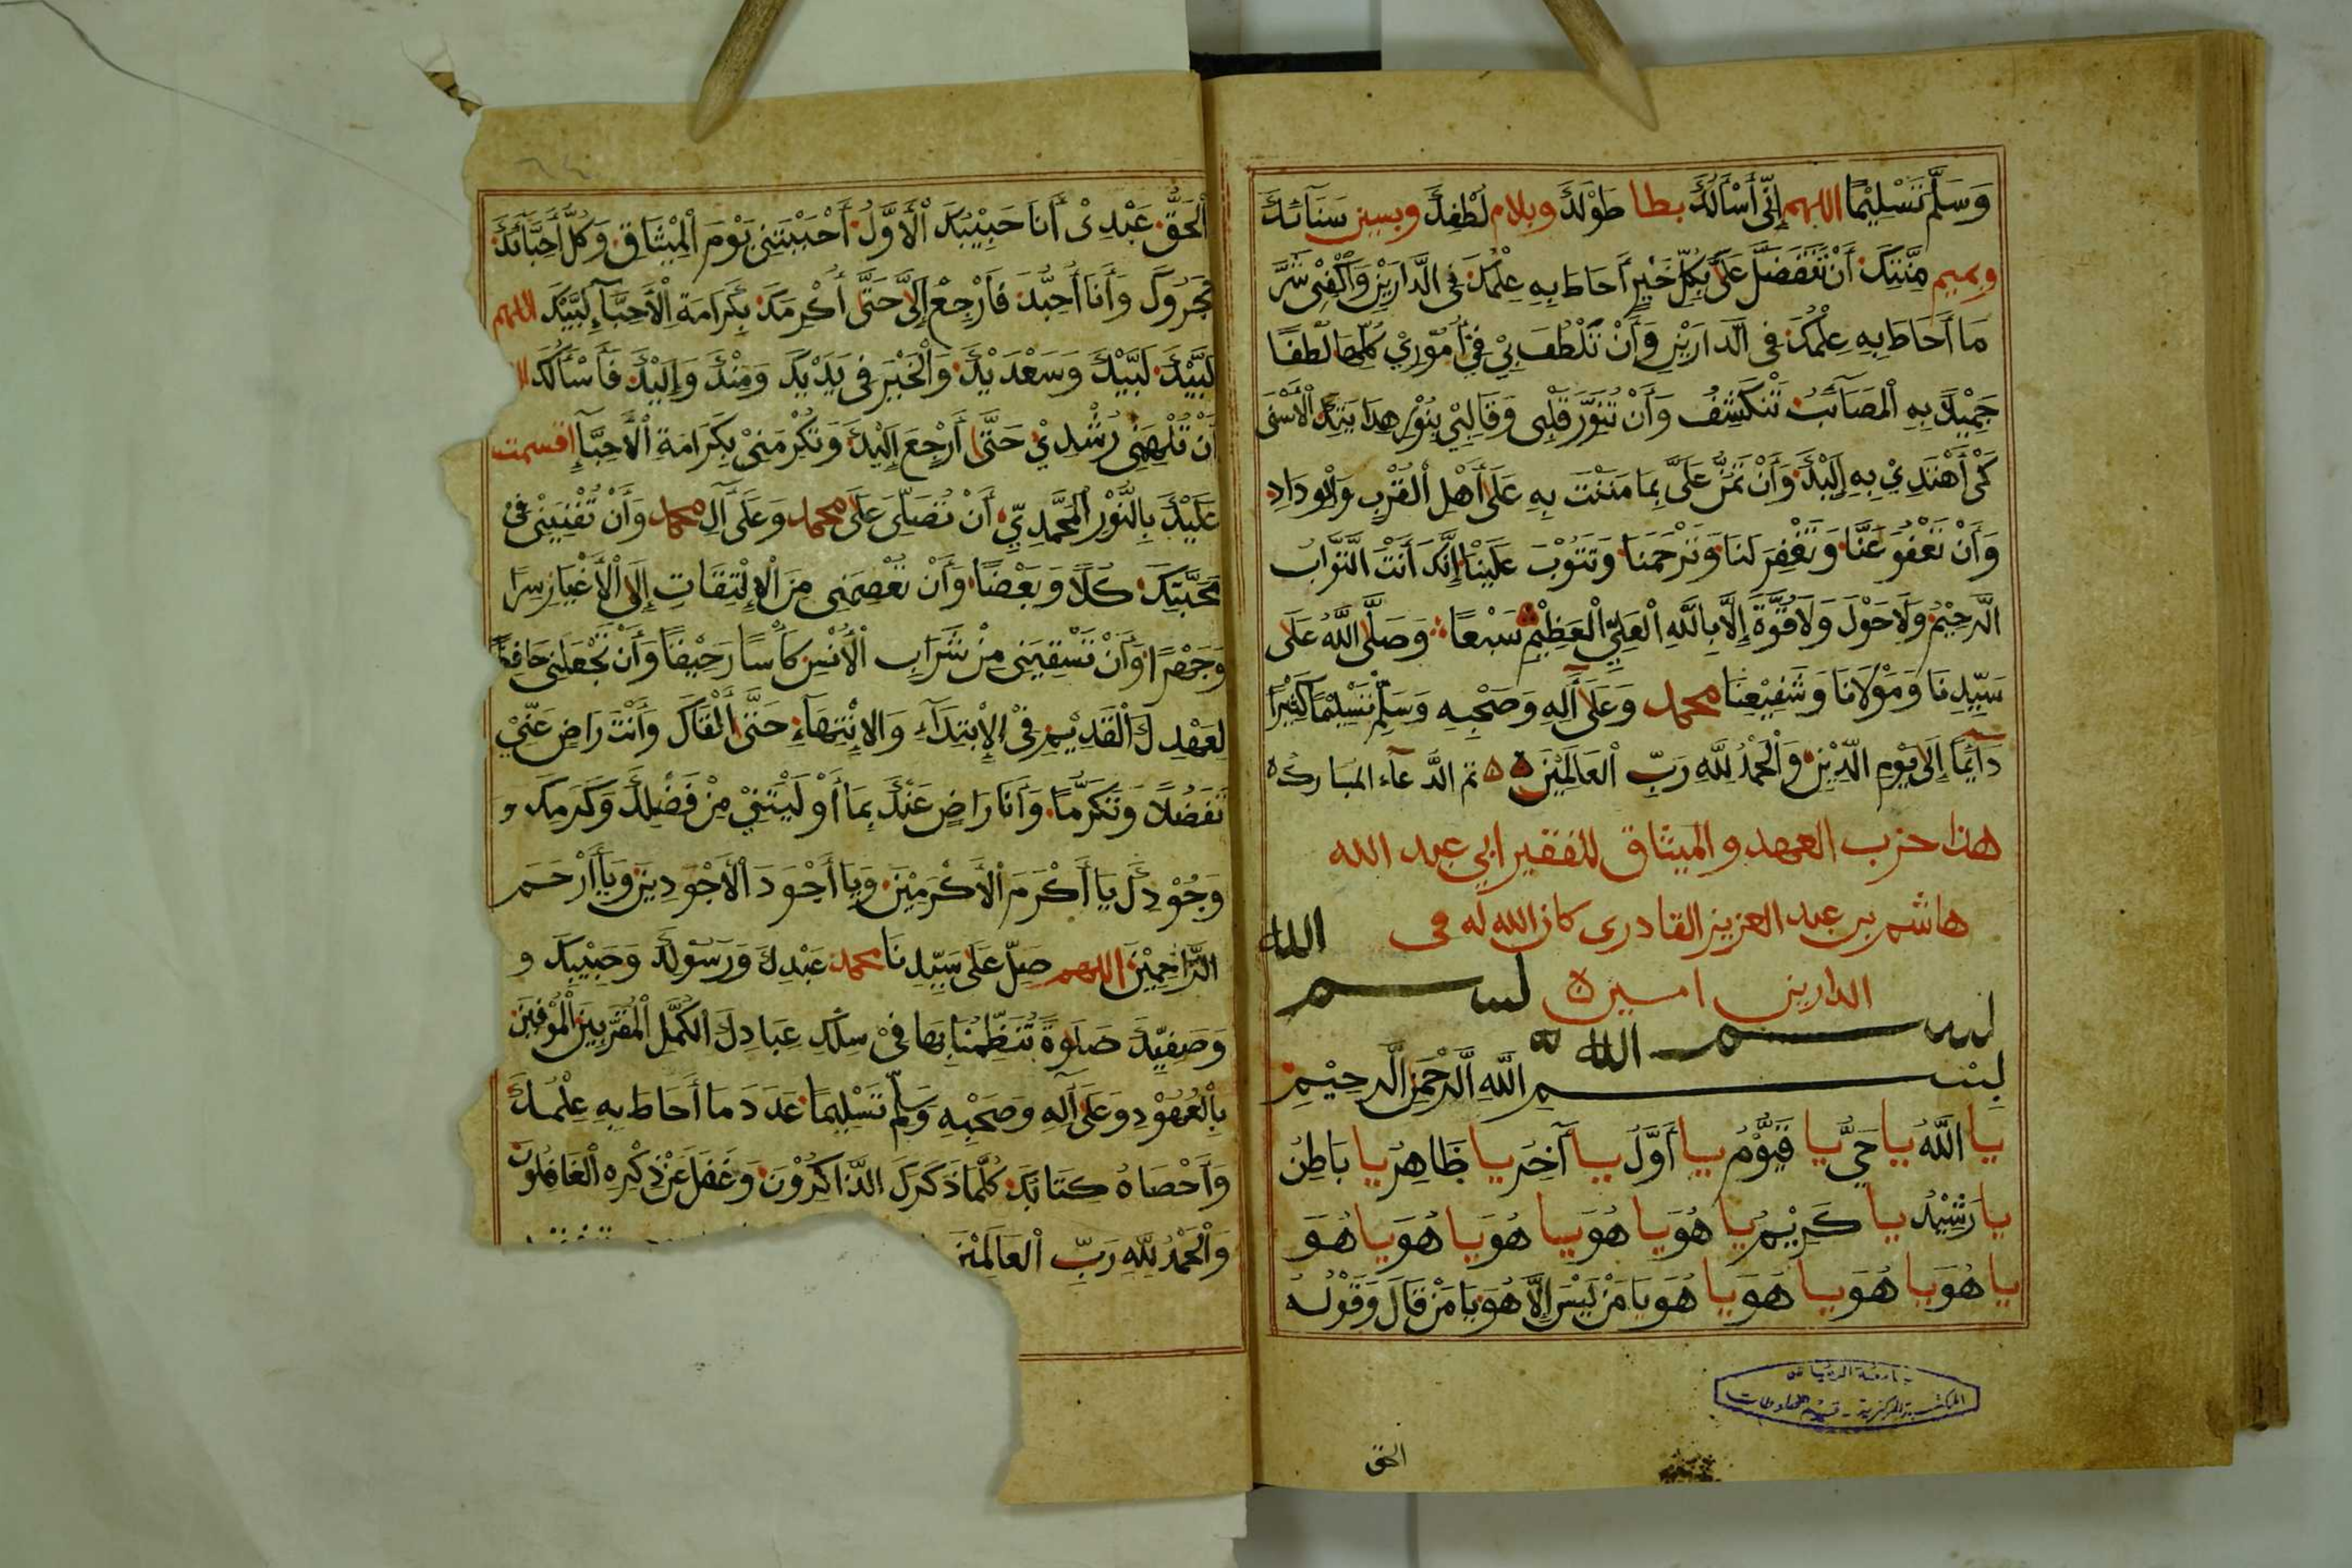 وَسَلَّمَ تَسْلِيْمًا اللهم إِنِّي أَسْأَلُكَ بطا طَوْلِكَ وبلام لُطْفِكَ وبسين سَنَائِكَ
وبميم مِنَّتِكَ أَنْ تَتَفَضَّلَ عَلَيَّ بِكُلِّ خَيْرٍ أَحَاطَ بِهِ عِلْمُكَ فِي الدَّارَيْنِ وَاكْفِنِي شَرَّ
مَا أَحَاطَ بِهِ عِلْمُكَ فِي الدَّارَيْنِ وَأَنْ تَلْطُفَ بِيْ فِيْ أُمُوْرِيْ كُلِّهَا لُطْفًا
جَمِيْلًا بِهِ الْمَصَآئِبُ تَنْكَشِفُ وَأَنْ تُنَوِّرَ قَلْبِي وَقَالِبِيْ بِنُوْرِ هِدَايَتِكَ الْأَسْنَى
كَيْ أَهْتَدِيْ بِهِ إِلَيْكَ وَأَنْ تَمُنَّ عَلَيَّ بِمَا مَنَنْتَ بِهِ عَلَى أَهْلِ الْقُرْبِ وَالْوِدَادِ
وَأَنْ تَعْفُوَ عَنَّا وَتَغْفِرَ لَنَا وَتَرْحَمَنَا وَتَتُوْبَ عَلَيْنَا إِنَّكَ أَنْتَ التَّوَّابُ
الرَّحِيْمُ وَلَا حَوْلَ وَلَا قُوَّةَ إِلَّا بِاللَّهِ الْعَلِيِّ الْعَظِيْمِ سَبْعًا وَصَلَّى اللَّهُ عَلَى
سَيِّدِنَا وَمَوْلَانَا وَشَفِيْعِنَا محمد وَعَلَى آلِهِ وَصَحْبِهِ وَسَلِّمْ تَسْلِيْمًا كَثِيْرًا
دَآئِمًا إِلَى يَوْمِ الدِّيْنِ وَالْحَمْدُ لِلَّهِ رَبِّ الْعَالَمِيْنَ تم الدعآء المباركه
هذا حزب العهد و الميثاق للفقير ابي عبد الله
هاشم بن عبد العزيز القادرى كان الله له فى
الدارين امين
بسم الله
بسم الله
بِسْمِ اللَّهِ الرَّحْمَنِ الرَّحِيْمِ
يا اللَّهُ يا حَيُّ يا قَيُّوْمُ يا أَوَّلُ يا آخِرُ يا ظَاهِرُ يا بَاطِنُ
يا رَشِيْدُ يا كَرِيْمُ يا هُوَ يا هُوَ يا هُوَ يا هُوَ يا هُوَ
يا هُوَ يا هُوَ يا هُوَ يا هُوَ يَا مَنْ لَيْسَ إِلَّا هُوَ يَا مَنْ قَالَ وَقَوْلُهُ
الحق
جامعة الرياض
المكتبة المركزية - قسم المخطوطات
الْحَقُّ عَبْدِيْ أَنَا حَبِيْبُكَ الْأَوَّلُ أَحْبَبْتَنِي يَوْمَ الْمِيْثَاقِ وَكُلُّ أَحِبَّآئِكَ
هَجَرُوكَ وَأَنَا أُحِبُّكَ فَارْجِعْ إِلَيَّ حَتَّى أُكْرِمَكَ بِكَرَامَةِ الْأَحِبَّآءِ لَبَّيْكَ اللهم
لَبَّيْكَ لَبَّيْكَ وَسَعْدَيْكَ وَالْخَيْرُ فِي يَدَيْكَ وَمِنْكَ وَإِلَيْكَ فَأَسْأَلُكَ
أَنْ تُلْهِمَنِي رُشْدِيْ حَتَّى أَرْجِعَ إِلَيْكَ وَتُكْرِمَنِيْ بِكَرَامَةِ الْأَحِبَّآءِ اقسمت
عَلَيْكَ بِالنُّوْرِ الْمُحَمَّدِيِّ أَنْ تُصَلِّيَ عَلَى محمد وَعَلَى آلِ محمد وَأَنْ تُفْنِيَنِيْ فِيْ
مَحَبَّتِكَ كُلًّا وَبَعْضًا وَأَنْ تَعْصِمَنِي مِنَ الْإِلْتِفَاتِ إِلَى الْأَغْيَارِ سِرًّا
وَجَهْرًا وَأَنْ تَسْقِيَنِي مِنْ شَرَابِ الْأُنْسِ كَأْسًا رَحِيْقًا وَأَنْ تَجْعَلَنِي حَافِظًا
لِعَهْدِكَ الْقَدِيْمِ فِيْ الْإِبْتِدَآءِ وَالْإِنْتِهَآءِ حَتَّى أَلْقَاكَ وَأَنْتَ رَاضٍ عَنِّيْ
تَفَضُّلًا وَتَكَرُّمًا وَأَنَا رَاضٍ عَنْكَ بِمَا أَوْلَيْتَنِيْ مِنْ فَضْلِكَ وَكَرَمِكَ و
وَجُوْدِكَ يَا أَكْرَمَ الْأَكْرَمِيْنَ وَيَا أَجْوَدَ الْأَجْوَدِيْنَ وَيَا أَرْحَمَ
الرَّاحِمِيْنَ اللهم صَلِّ عَلَى سَيِّدِنَا محمد عَبْدِكَ وَرَسُوْلِكَ وَحَبِيْبِكَ و
وَصَفِيِّكَ صَلٰوةً تُنَظِّمُنَا بِهَا فِيْ سِلْكِ عِبَادِكَ الْكُمَّلِ الْمُقَرَّبِيْنَ الْمُوْفِيْنَ
بِالْعُهُوْدِ وَعَلَى آلِهِ وَصَحْبِهِ وَسَلِّمْ تَسْلِيْمًا عَدَدَ مَا أَحَاطَ بِهِ عِلْمُكَ
وَأَحْصَاهُ كِتَابُكَ كُلَّمَا ذَكَرَكَ الذَّاكِرُوْنَ وَغَفَلَ عَنْ ذِكْرِهِ الْغَافِلُوْنَ
وَالْحَمْدُ لِلَّهِ رَبِّ الْعَالَمِيْنَ